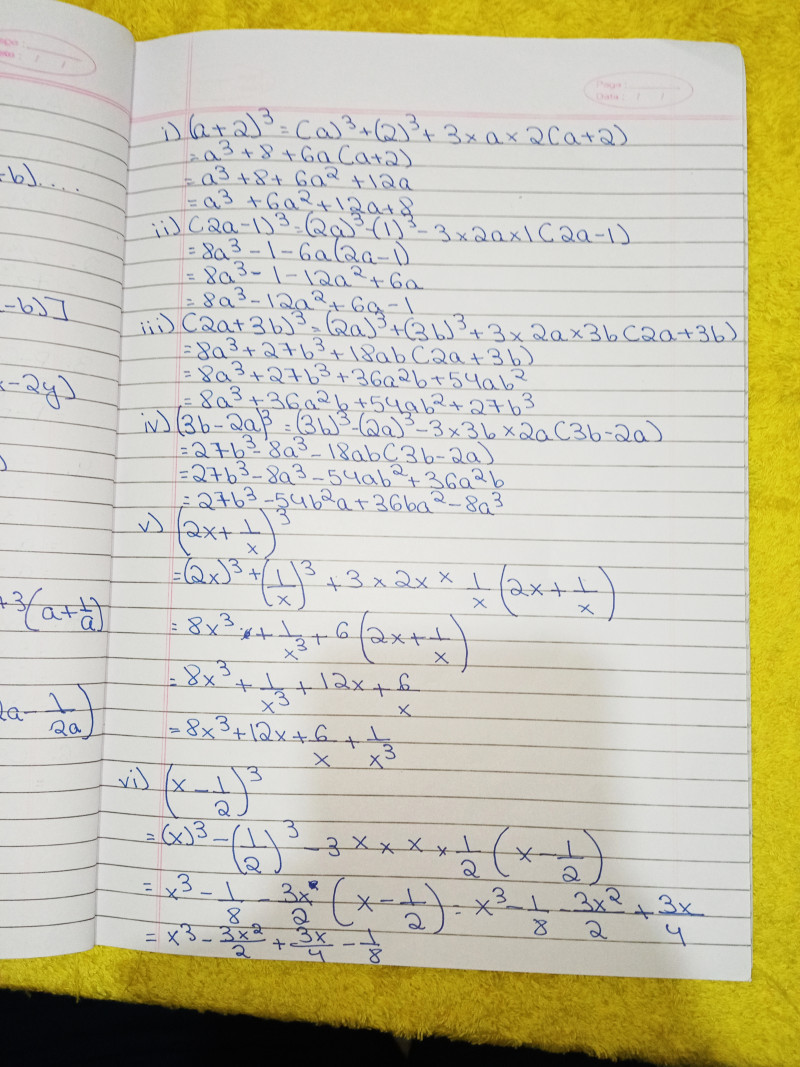 Page :
Date : / /
Page :
Date : / /
-b]....
-b)]
x-2y)
)
+3(a+1/a)
2a-1/2a)
i) (a+2)³ = (a)³+(2)³+3×a×2(a+2)
= a³+8+6a(a+2)
= a³+8+6a²+12a
= a³+6a²+12a+8
ii) (2a-1)³ = (2a)³-(1)³-3×2a×1(2a-1)
= 8a³-1-6a(2a-1)
= 8a³-1-12a²+6a
= 8a³-12a²+6a-1
iii) (2a+3b)³ = (2a)³+(3b)³+3×2a×3b(2a+3b)
= 8a³+27b³+18ab(2a+3b)
= 8a³+27b³+36a²b+54ab²
= 8a³+36a²b+54ab²+27b³
iv) (3b-2a)³ = (3b)³-(2a)³-3×3b×2a(3b-2a)
= 27b³-8a³-18ab(3b-2a)
= 27b³-8a³-54ab²+36a²b
= 27b³-54b²a+36ba²-8a³
v) (2x+1/x)³
= (2x)³+(1/x)³+3×2x×1/x(2x+1/x)
= 8x³+1/x³+6(2x+1/x)
= 8x³+1/x³+12x+6/x
= 8x³+12x+6/x+1/x³
vi) (x-1/2)³
= (x)³-(1/2)³-3×x×1/2(x-1/2)
= x³-1/8-3x/2(x-1/2) = x³-1/8-3x²/2+3x/4
= x³-3x²/2+3x/4-1/8